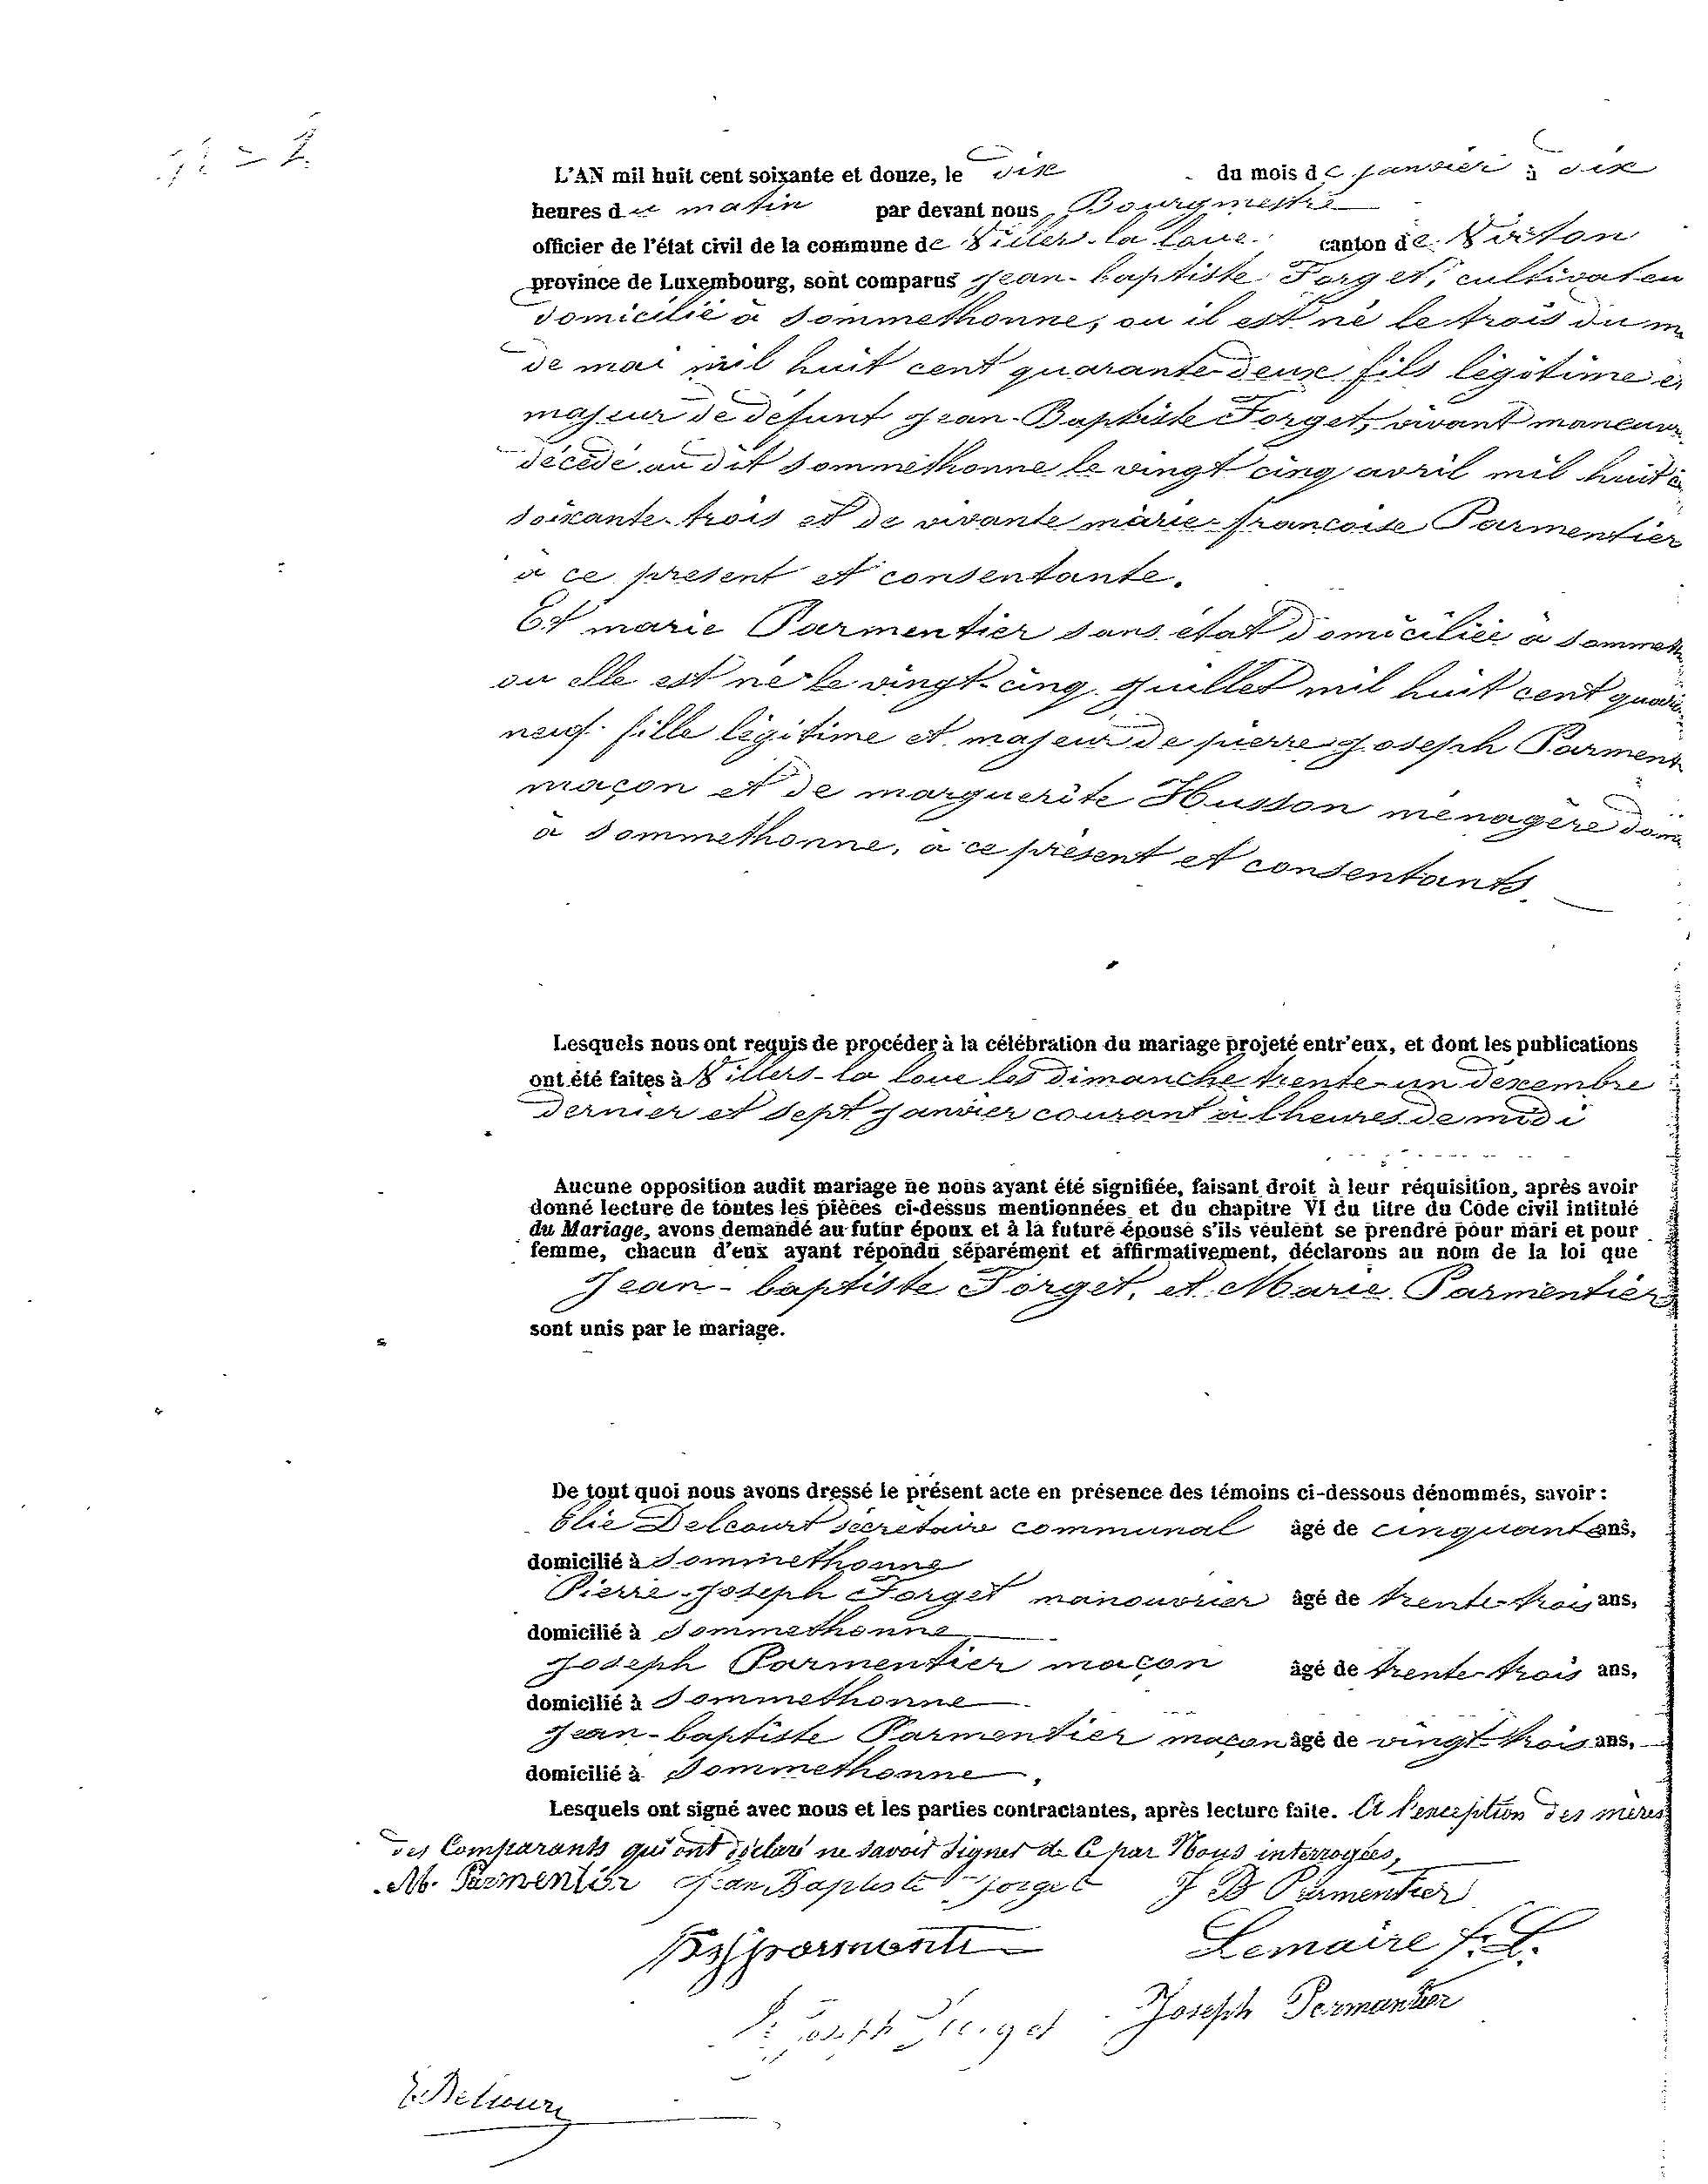 N° 2.
L'AN mil huit cent soixante et douze, le dix du mois de janvier à dix
heures du matin par devant nous, Bourgmestre
officier de l'état civil de la commune de Villers-la-loue canton de Virton
province de Luxembourg, sont comparus Jean-baptiste Forget, cultivateu
domicilié à Sommethonne, ou il est né le trois du m
de mai mil huit cent quarante-deux fils légitime e
majeur de défunt Jean-Baptiste Forget, vivant manœuv
décédé au dit Sommethonne le vingt cinq avril mil huit c
soixante-trois et de vivante marie-françoise Parmentier
à ce présent et consentante.
Et marie Parmentier sans état domiciliée à Sommeth
ou elle est né le vingt-cinq Juillet mil huit cent quara
neuf fille légitime et majeur de pierre Joseph Parment
maçon et de marguerite Husson ménagère domi
à Sommethonne, à ce présent et consentants.
Lesquels nous ont requis de procéder à la célébration du mariage projeté entr'eux, et dont les publications
ont été faites à Villers-la loue les dimanche trente-un décembre
dernier et sept Janvier courant à lheures de midi
Aucune opposition audit mariage ne nous ayant été signifiée, faisant droit à leur réquisition, après avoir
donné lecture de toutes les pièces ci-dessus mentionnées et du chapitre VI du titre du Code civil intitulé
du Mariage, avons demandé au futur époux et à la future épouse s'ils veulent se prendre pour mari et pour
femme, chacun d'eux ayant répondu séparément et affirmativement, déclarons au nom de la loi que
Jean-baptiste Forget, et Marie Parmentier
sont unis par le mariage.
De tout quoi nous avons dressé le présent acte en présence des témoins ci-dessous dénommés, savoir :
Elie Delcourt secrétaire communal âgé de cinquante ans,
domicilié à Sommethonne
Pierre-Joseph Forget manouvrier âgé de trente-trois ans,
domicilié à Sommethonne
Joseph Parmentier maçon âgé de trente-trois ans,
domicilié à Sommethonne
Jean-baptiste Parmentier maçon âgé de vingt-trois ans,
domicilié à Sommethonne,
Lesquels ont signé avec nous et les parties contractantes, après lecture faite. A l'exception des mères
des Comparants qui ont déclaré ne savoir signer de Ce par Nous interrogées,
M. Parmentier Jean Baptiste Forget J B Parmentier
Lemaire f. L.
P. Joseph Forget Joseph Permantier
E. Delcourt